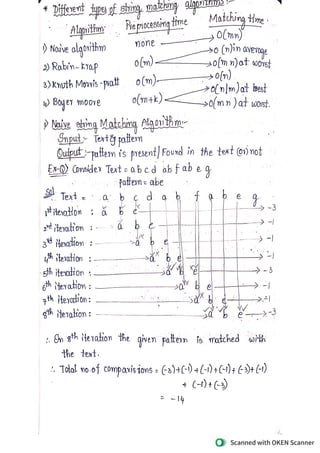 * Different types of string matching algorithms:-
Algorithm Preprocessing time Matching time.
1) Naive algorithm none → O(mn)
2) Rabin-krap O(m) → O(n) in average
→ O(mn) at worst
3) Knuth Morris-pratt O(m) → O(n)
4) Boyer moore O(m+k) → O(n/m) at best
→ O(mn) at worst.
1) Naive string Matching Algorithm:-
Input:- Text & pattern
Output:- pattern is present/Found in the text (or) not
Ex-① Consider Text = a b c d a b f a b e g
pattern = a b e
Sol Text = a b c d a b f a b e g
1st iteration : a b e → -3
2nd iteration : a b e → -1
3rd iteration : a b e → -1
4th iteration : a b e → -1
5th iteration : a b e → -3
6th iteration : a b e → -1
7th iteration : a b e → -1
8th iteration : a b e → -3
∴ In 8th iteration the given pattern is matched with
the text.
∴ Total no of comparistions = (-3)+(-1)+(-1)+(-1)+(-3)+(-1)
+(-1)+(-3)
= -14
Scanned with OKEN Scanner